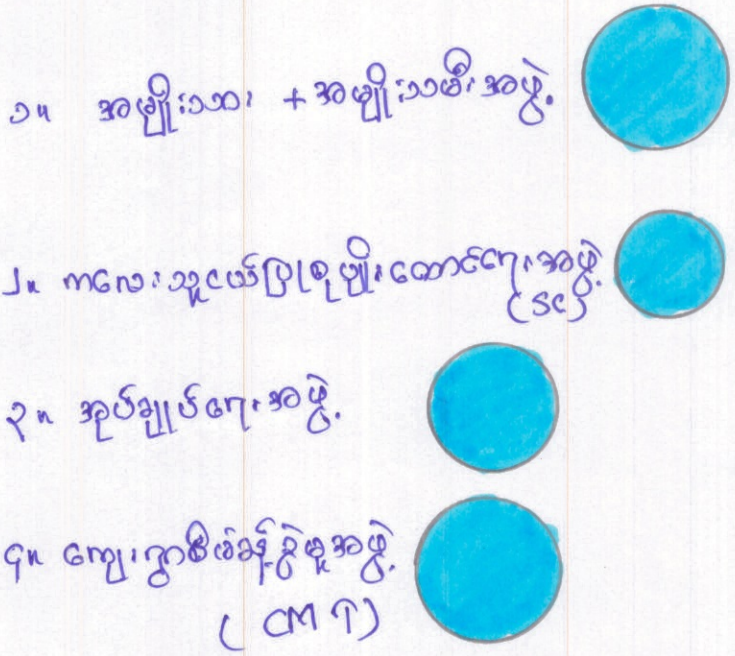 ၁။ အမျိုးသား + အမျိုးသမီးအဖွဲ့
၂။ ကလေးသူငယ်ပြုစုပျိုးထောင်ရေးအဖွဲ့
(SC)
၃။ အုပ်ချုပ်ရေးအဖွဲ့
၄။ ကျေးရွာစီမံခန့်ခွဲမှုအဖွဲ့
(CMT)